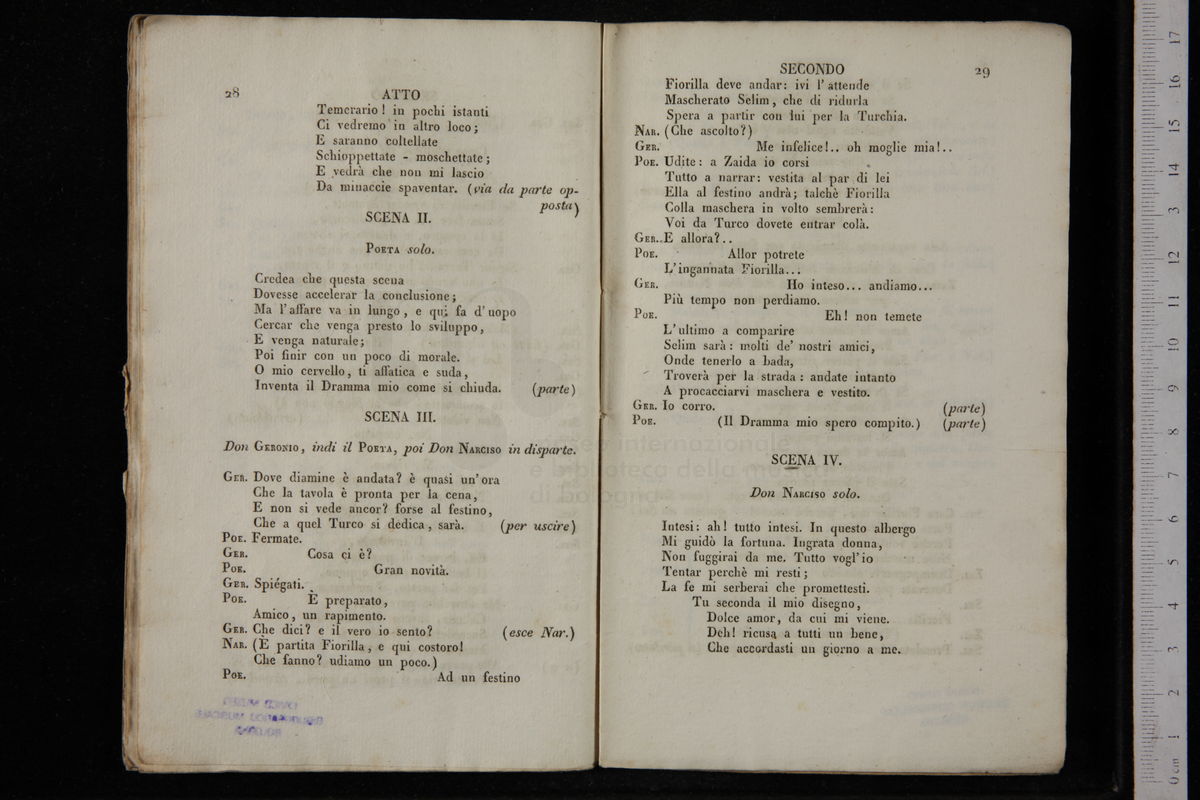 28
ATTO
Temerario! in pochi istanti
Ci vedremo in altro loco;
E saranno coltellate
Schioppettate - moschettate;
E vedrà che non mi lascio
Da minaccie spaventar. (via da parte op-
posta)
SCENA II.
POETA solo.
Credea che questa scena
Dovesse accelerar la conclusione;
Ma l'affare va in lungo, e qui fa d'uopo
Cercar che venga presto lo sviluppo,
E venga naturale;
Poi finir con un poco di morale.
O mio cervello, ti affatica e suda,
Inventa il Dramma mio come si chiuda. (parte)
SCENA III.
Don GERONIO, indi il POETA, poi Don NARCISO in disparte.
GER. Dove diamine è andata? è quasi un'ora
Che la tavola è pronta per la cena,
E non si vede ancor? forse al festino,
Che a quel Turco si dedica, sarà. (per uscire)
POE. Fermate.
GER. Cosa ci è?
POE. Gran novità.
GER. Spiégati.
POE. È preparato,
Amico, un rapimento.
GER. Che dici? e il vero io sento? (esce Nar.)
NAR. (È partita Fiorilla, e qui costoro!
Che fanno? udiamo un poco.)
POE. Ad un festino
SECONDO
29
Fiorilla deve andar: ivi l'attende
Mascherato Selim, che di ridurla
Spera a partir con lui per la Turchia.
NAR. (Che ascolto?)
GER. Me infelice!.. oh moglie mia!..
POE. Udite: a Zaida io corsi
Tutto a narrar: vestita al par di lei
Ella al festino andrà; talchè Fiorilla
Colla maschera in volto sembrerà:
Voi da Turco dovete entrar colà.
GER. E allora?..
POE. Allor potrete
L'ingannata Fiorilla...
GER. Ho inteso... andiamo...
Più tempo non perdiamo.
POE. Eh! non temete
L'ultimo a comparire
Selim sarà: molti de' nostri amici,
Onde tenerlo a bada,
Troverà per la strada: andate intanto
A procacciarvi maschera e vestito.
GER. Io corro. (parte)
POE. (Il Dramma mio spero compito.) (parte)
SCENA IV.
Don NARCISO solo.
Intesi: ah! tutto intesi. In questo albergo
Mi guidò la fortuna. Ingrata donna,
Non fuggirai da me. Tutto vogl'io
Tentar perchè mi resti;
La fe mi serberai che promettesti.
Tu seconda il mio disegno,
Dolce amor, da cui mi viene.
Deh! ricusa a tutti un bene,
Che accordasti un giorno a me.
museo internazionale
e biblioteca della musica
di bologna
0 cm 1 2 3 4 5 6 7 8 9 10 11 12 13 14 15 16 17